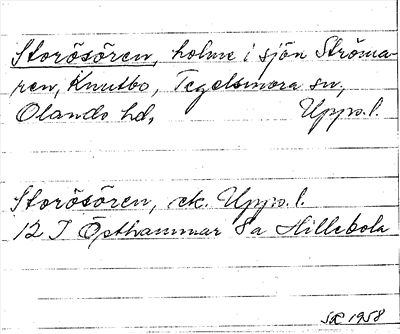 Storösören, holme i sjön Ströma-
ren, Knutbo, Tegelsmora sn,
Olands hd, Upps. l.
Storösören, ek. Upps. l.
12 I Östhammar 8a Hillebola
1958